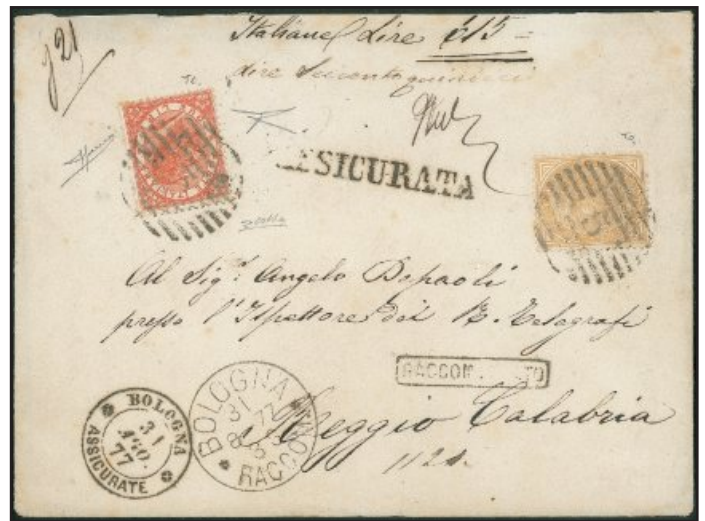 Italiane Lire 615=
Lire Seicentoquindici
ASSICURATA
Al Sig.r Angelo Dopaoli
presso l'Ispettore dei R. Telegrafi
RACCOM TO
Reggio Calabria
1124.
BOLOGNA
31
AGO.
77
ASSICURATE
BOLOGNA
31
8 77
RACCOM